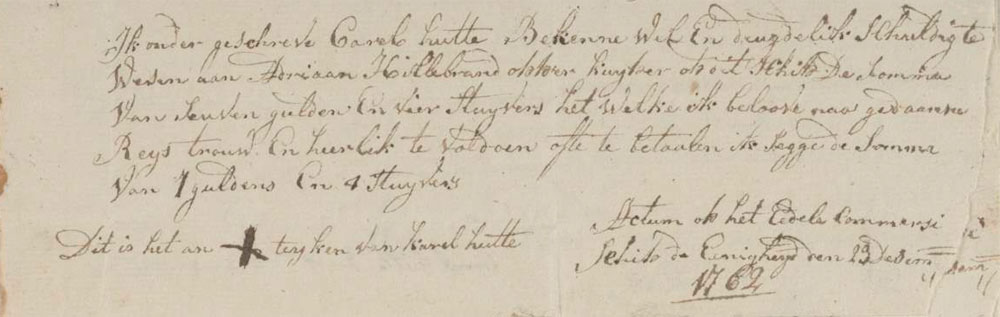 Ik onder geschreve Carel hutte Bekenne Wel En deugdelik Schuldig te
Wesen aan Adriaan Hillebrand op dit Schip De Somma
Van Seuven gulden En vier Stuyvers het Welke ik beloove naa gedaanne
Reys trouw En heerlik te Voldoen ofte te betaalen ik Segge de Somma
Van 7 guldens En 4 Stuyvers
Dit is het an + teyken van Karel hutte
Actum op het Edele Commersi
Schip de Enigheyd den 23 Desem
1762